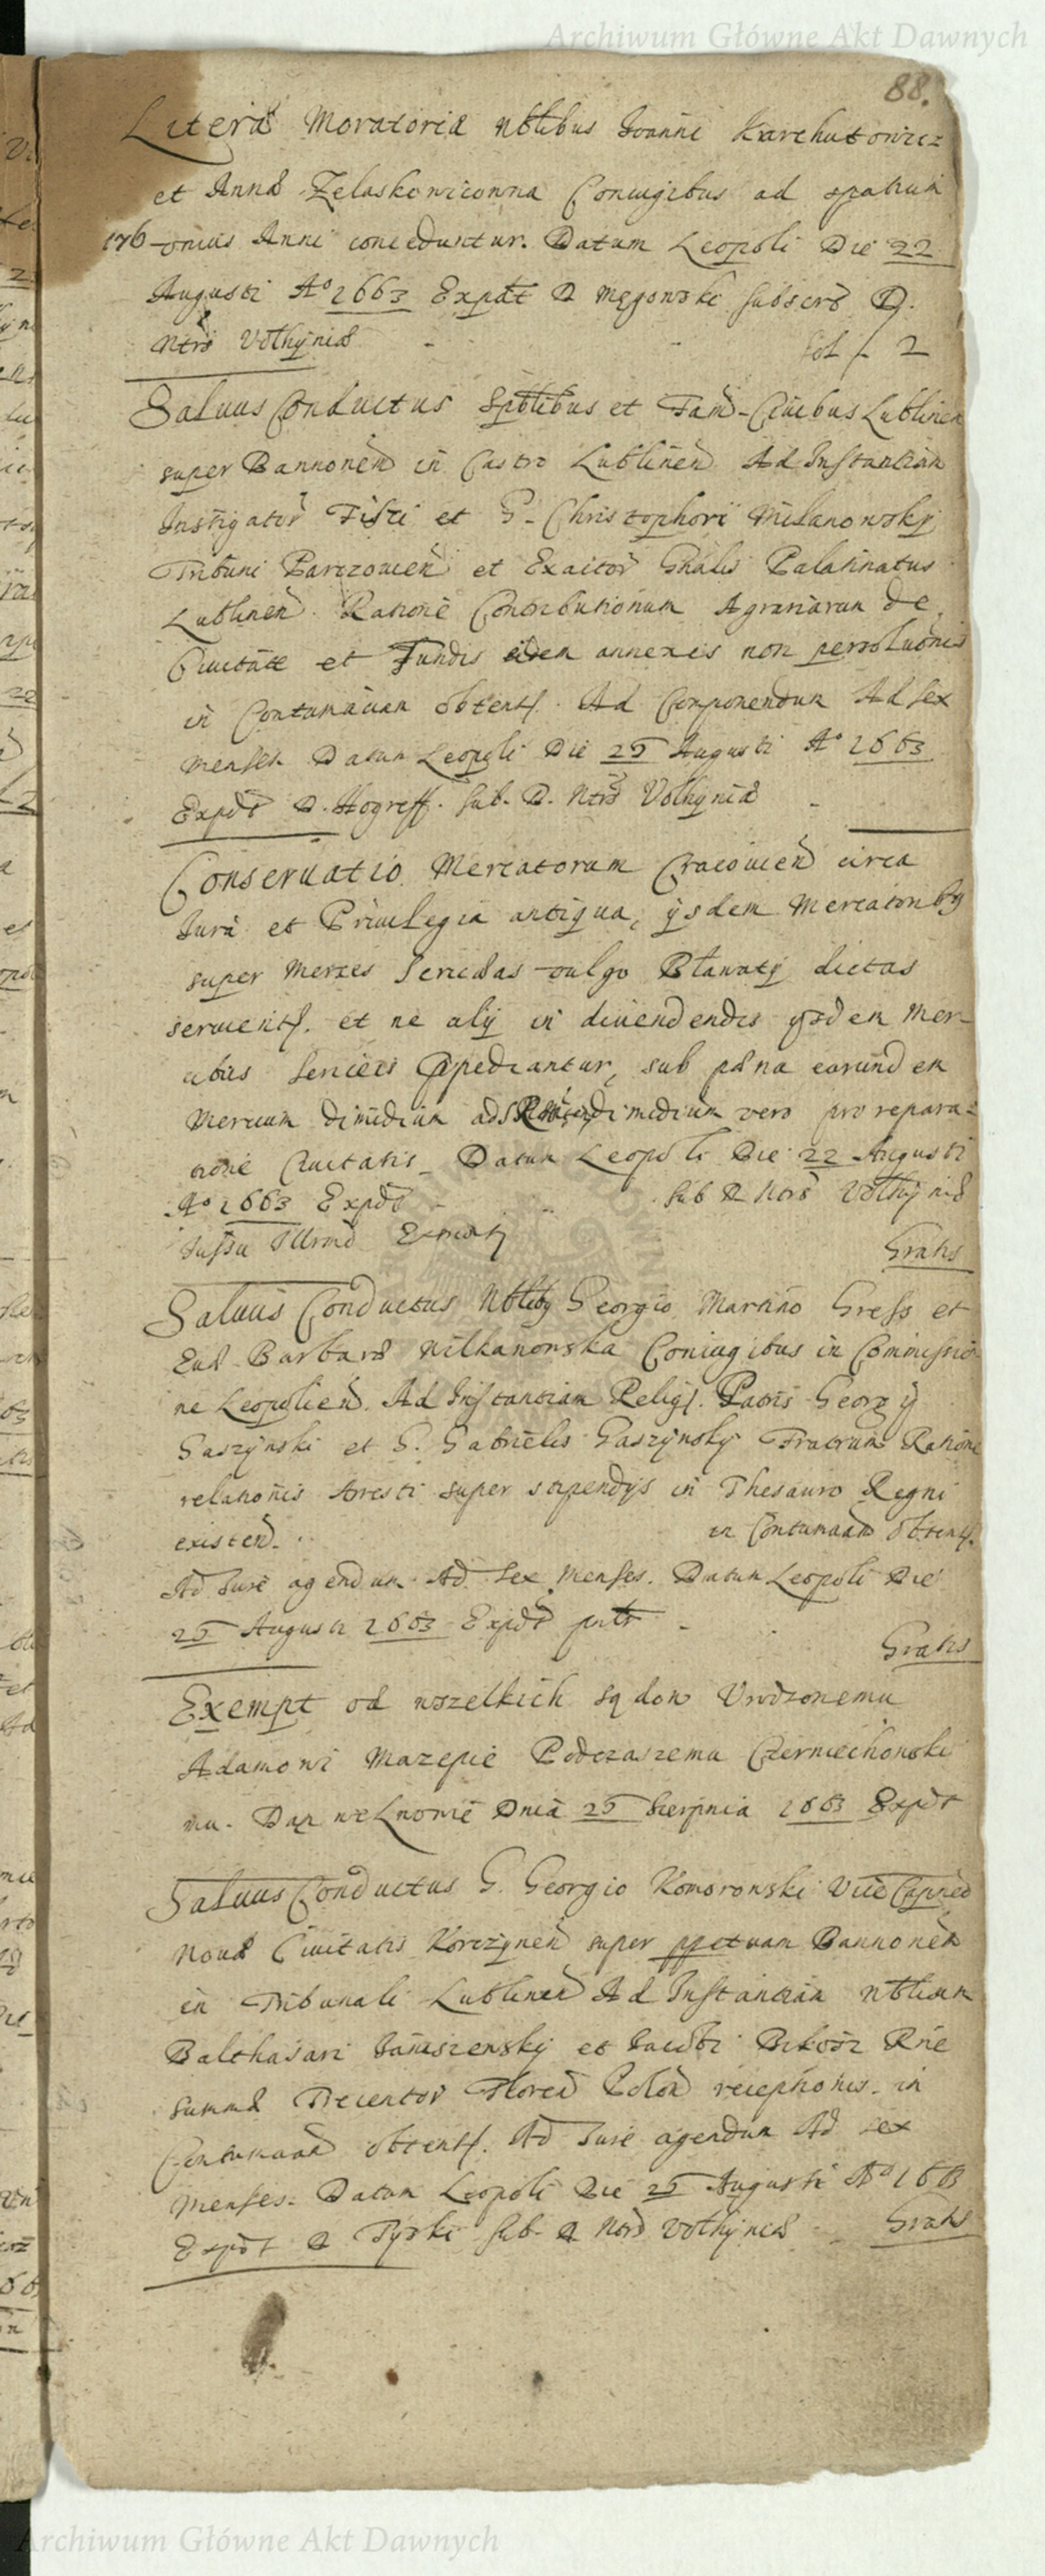 Archiwum Główne Akt Dawnych
88.
Literæ Moratoriæ Nobłibus Joanni Karchutowicz
et Annæ Zelaskowiconna Coniugibus ad spatium
176 unius Anni conceduntur. Datum Leopoli Die 22
Augusti A° 1663 Expdt D Męgowski subscrō D.
Ntrō Vołhyniæ - - sol f. 2
Saluus Conductus Spłtibus et Fam. Ciuibus Lublinen
super Bannoneñ in Castro Lublineñ Ad Instantiam
Instigator Fisci et G. Christophori Milanowsky
Tribuni Parczouieñ et Exactor Gñalis Palatinatus
Lublineñ. Ratione Contributionum Agrariarum de
Ciuitate et Fundis eidem annexis non persolutionis
in Contumatiam obtent. Ad Componendum Ad sex
menses. Datum Leopoli Die 25 Augusti A° 1663
Expdt D. Hogreff. Sub. D. Ntrō Vołhyniæ -
Conseruatio Mercatorum Cracouieñ circa
Jura et Priuilegia antiqua, ijsdem Mercatoribus
super merces Sericeas vulgo Bławaty dictas
seruient. et ne alij in diuendendis ijsdem Mer-
cibus Sericeis impediantur, sub pœna earundem
Mercium dimidium ad dimidium vero pro repara-
tione Ciuitatis. Datum Leopoli Die 22 Augusti
A° 1663 Expdt - Sub D Ntrō Vołhyniæ
Jussu Illrmi Gratis
Saluus Conductus Nobłibus Georgio Martino Gress et
Euæ Barbaræ Wilkanowska Coniugibus in Commissio-
ne Leopolieñ. Ad Instantiam Religs. Patris Georgij
Gaszynski et G. Gabrielis Gaszynsky Fratrum Ratione
relationis Aresti super stipendijs in Thesauro Regni
existeñ. in Contumaciam obtent.
Ad Jure agendum Ad Sex Menses. Datum Leopoli Die
25 Augusti 1663 Expdt
Gratis
Exempt od wszelkich sądow Vrodzonemu
Adamowi Mazepie Podczaszemu Czerniechowskie
mu. Dan we Lwowie Dnia 25 Sierpnia 1663 Expdt
Saluus Conductus G. Georgio Komorowski Vice Capneo
Nouæ Ciuitatis Korczyneñ super ppetuam Bannoneñ
in Tribunali Lublineñ Ad Instantiam Nobłium
Balthasari et Jacobi Rne
summæ Trecentor Floreñ Poloñ receptionis. in
Contumaciam obtent. Ad Jure agendum Ad sex
menses. Datum Leopoli Die 25 Augusti A° 1663
Expdt D Tyski Sub. D. Ntrō Vołhyniæ Gratis
Archiwum Główne Akt Dawnych